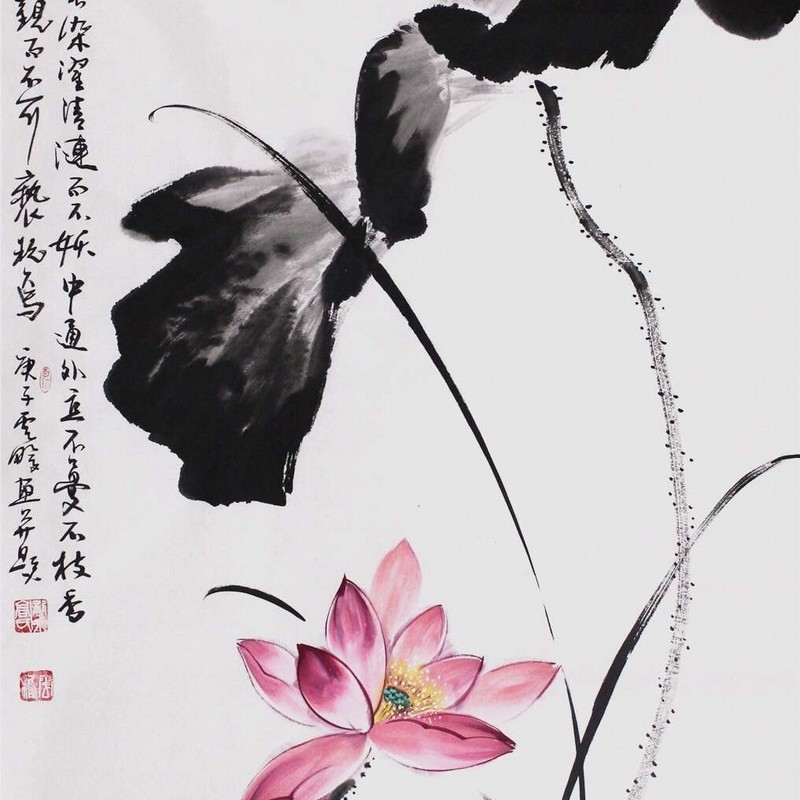 染濯清漣而不妖中通外直不蔓不枝香
觀而不可褻玩焉
庚子雲畫并題